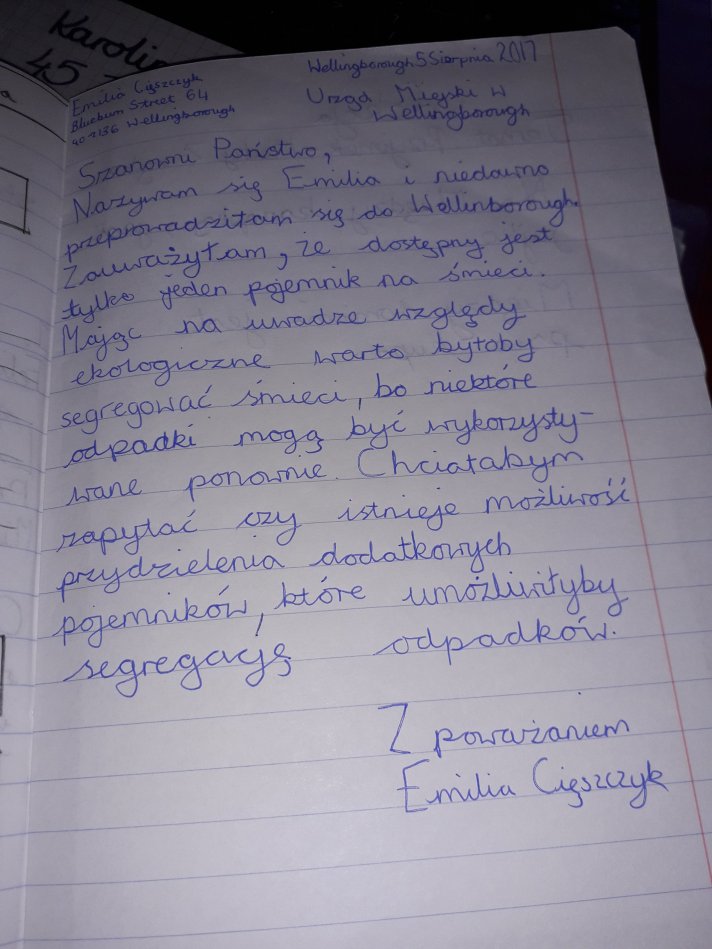 Karolin
45
a
Wellingborough 5 Sierpnia 2017
Emilia Cięszczyk
Bluebum Street 64
90-2136 Wellingborough
Urząd Miejski w
Wellingborough
Szanowni Państwo,
Nazywam się Emilia i niedawno
przeprowadziłam się do Wellinborough.
Zauważyłam, że dostępny jest
tylko jeden pojemnik na śmieci.
Mając na uwadze względy
ekologiczne warto byłoby
segregować śmieci, bo niektóre
odpadki mogą być wykorzysty-
wane ponownie. Chciałabym
zapytać czy istnieje możliwość
przydzielenia dodatkowych
pojemników, które umożliwiłyby
segregację odpadków.
Z poważaniem
Emilia Cięszczyk